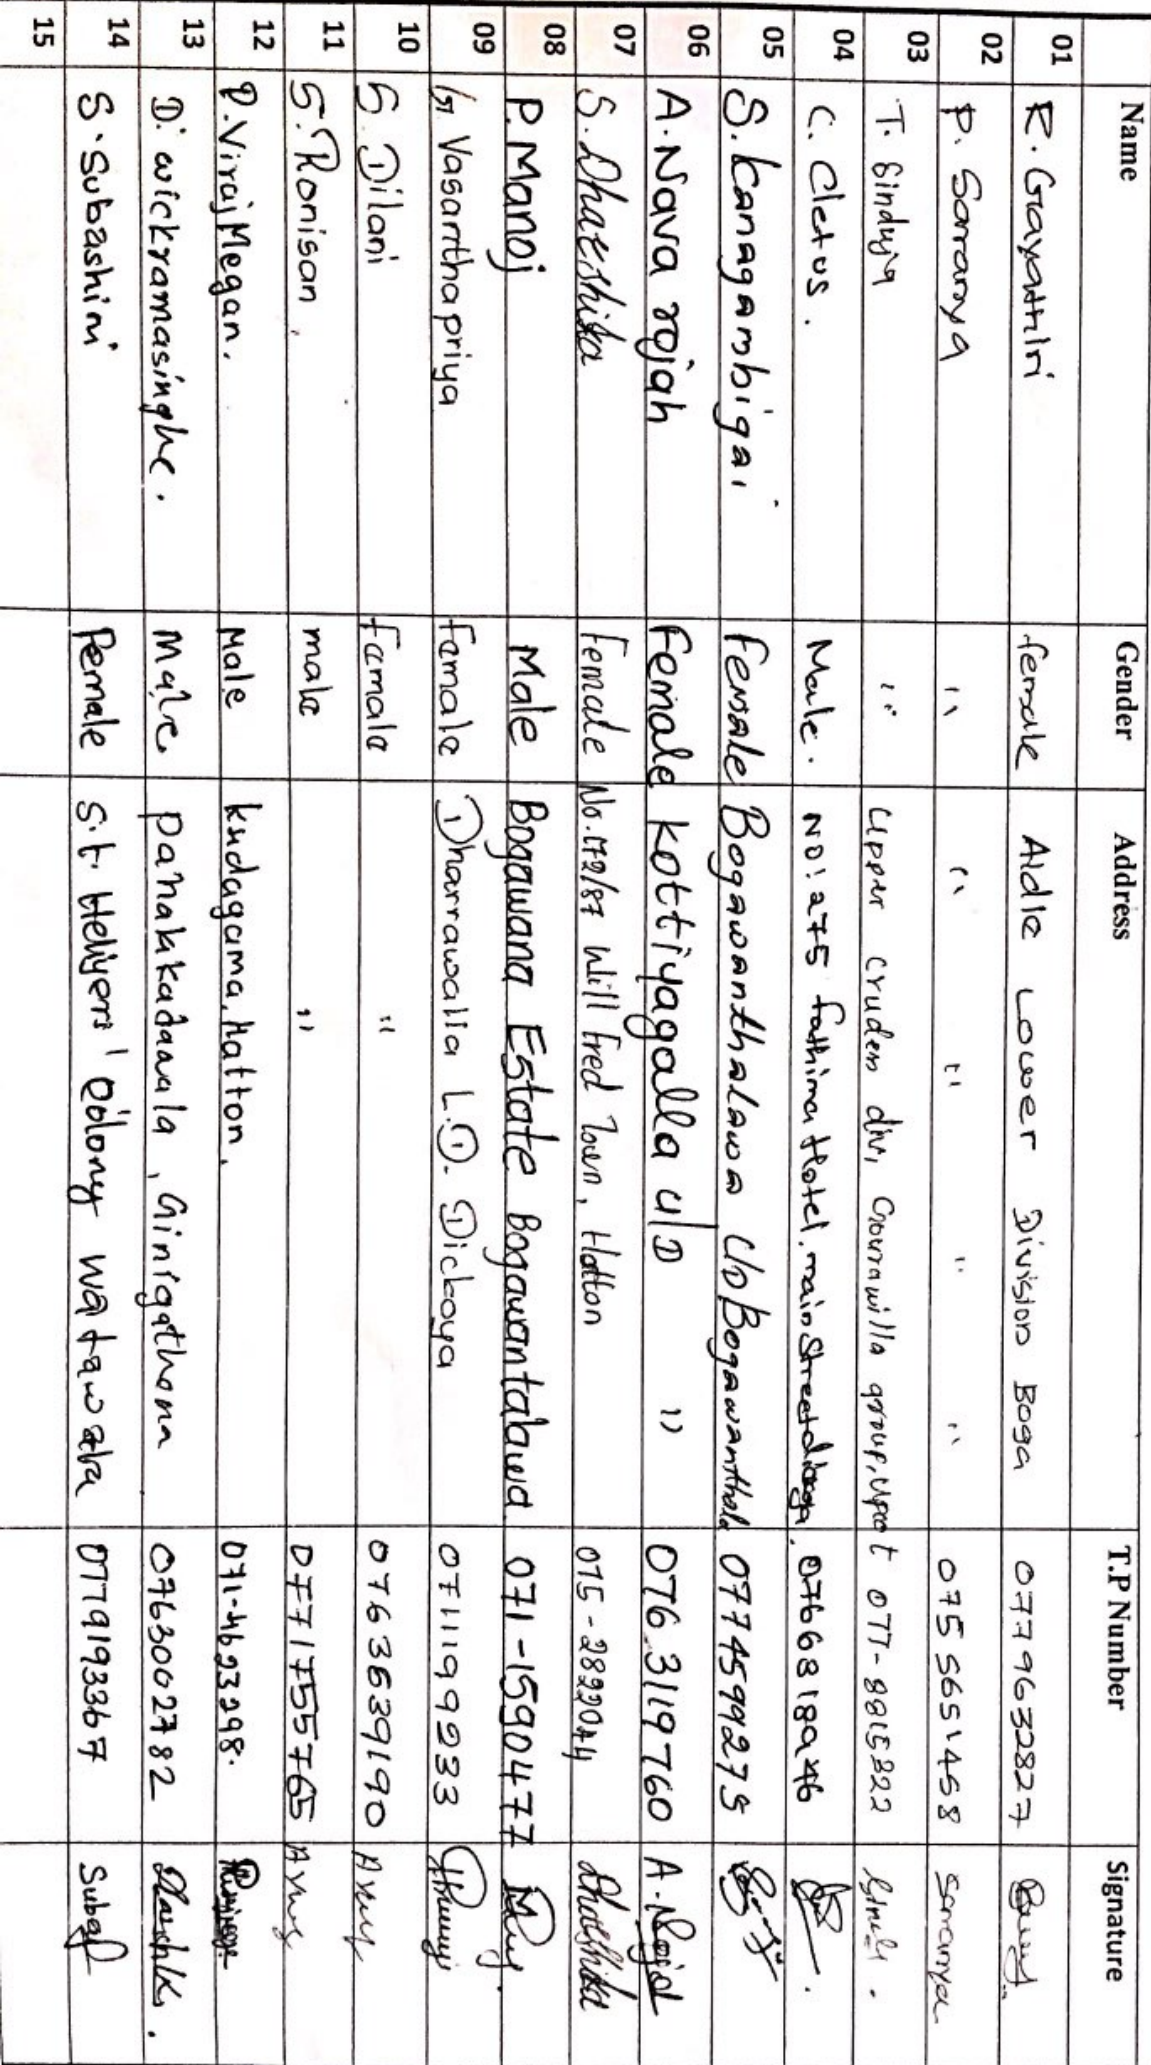 Name Gender Address T.P Number Signature
01 R. Gayathiri female Aidle Lower Division Boga 0779632827
02 P. Sarranya " " " " " 0755651458 Sarranya
03 T. Sinduja " Upper cruden div, Gouravilla group, Upcot 077-8815322
04 C. Cletus. Male. NO: 275 fathima Hotel, main Street, 0766818946
05 S. Kanagambigai Female Bogawanthalawa L/D Bogawanthala 0774599275
06 A. Nava rajah Female Kottiyagalla U/D " 076 3119760
07 S. Dharshika Female No.172/87 Will fred Town, Hatton 075-2822074 Dharshika
08 P. Manoj Male Bogawana Estate Bogawantalawa 071-1590477
09 G. Vasanthapriya Famale Dharrawalla L.D. Dickoya 0711199233
10 S. Dilani Famale " 0763639190
11 S. Ronison. male " 0771755765
12 P. Viraj Megan. Male Kudagama, Hatton. 071-4623298.
13 D. wickramasinghe. Male panakkadawala, Ginigathena 0763002782
14 S. Subashini Female S.t. Heliyers' Colony watawala 0779193367
15